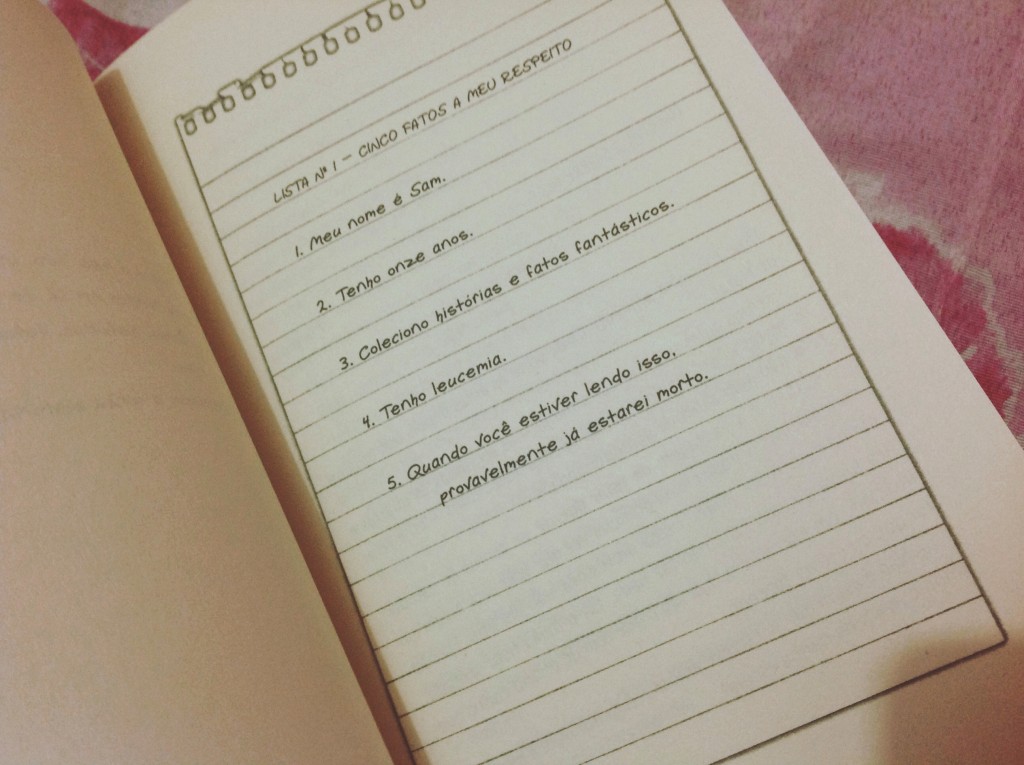 LISTA Nº 1 – CINCO FATOS A MEU RESPEITO
1. Meu nome é Sam.
2. Tenho onze anos.
3. Coleciono histórias e fatos fantásticos.
4. Tenho leucemia.
5. Quando você estiver lendo isso,
provavelmente já estarei morto.